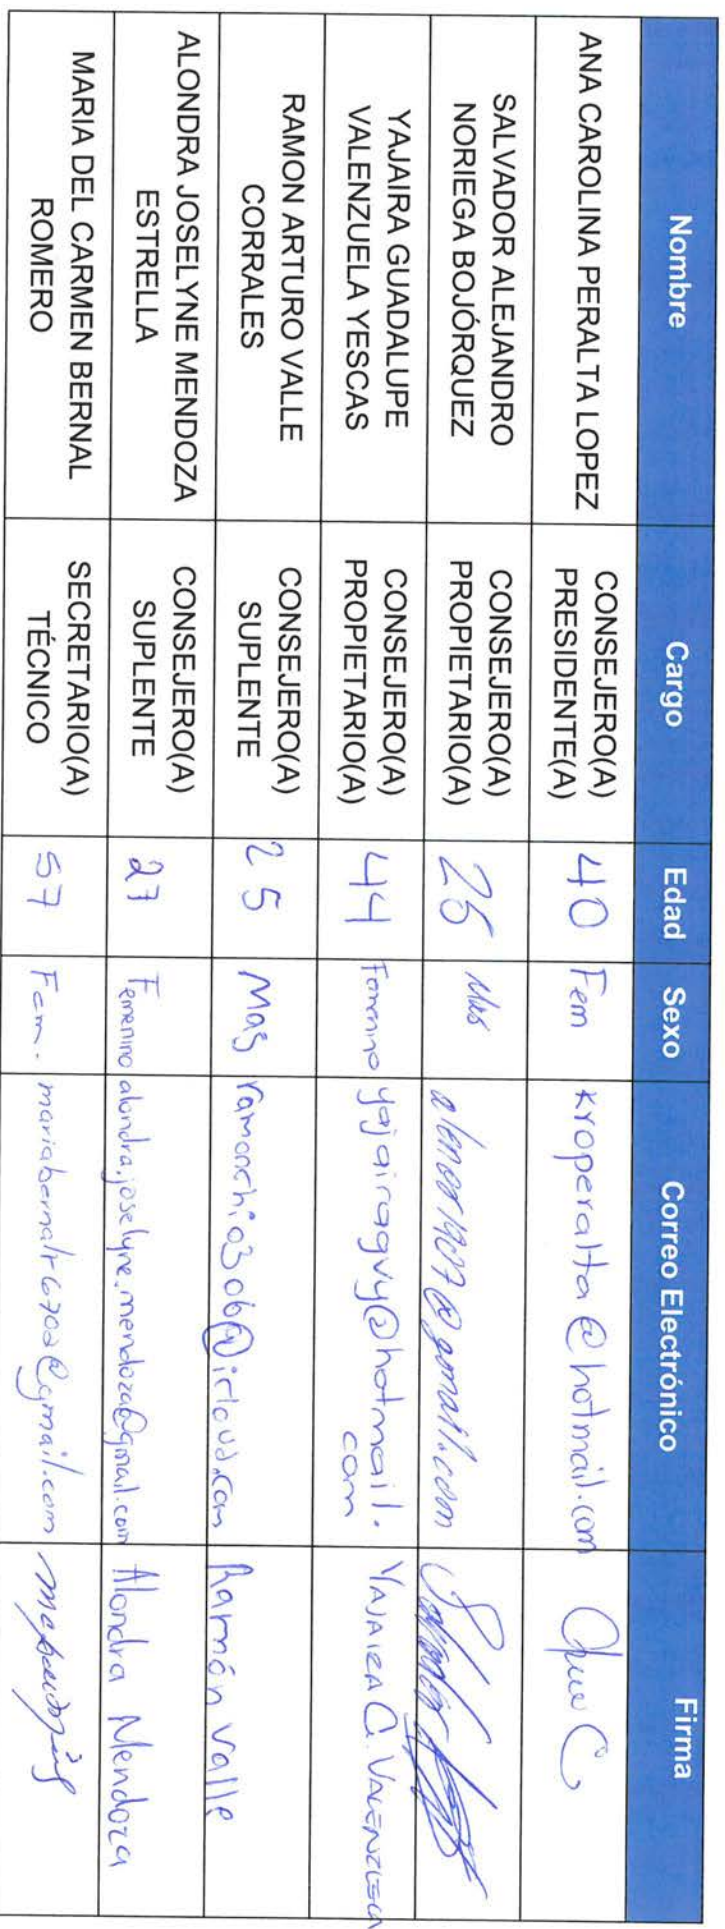 Nombre Cargo Edad Sexo Correo Electrónico Firma
ANA CAROLINA PERALTA LOPEZ CONSEJERO(A) PRESIDENTE(A) 40 Fem kroperalta@hotmail.com
SALVADOR ALEJANDRO NORIEGA BOJÓRQUEZ CONSEJERO(A) PROPIETARIO(A) 26 Mas alenor1907@gmail.com
YAJAIRA GUADALUPE VALENZUELA YESCAS CONSEJERO(A) PROPIETARIO(A) 44 Femenino yajairagvy@hotmail.com YAJAIRA G. VALENZUELA
RAMON ARTURO VALLE CORRALES CONSEJERO(A) SUPLENTE 25 Mas ramonchio306@icloud.com Ramón Valle
ALONDRA JOSELYNE MENDOZA ESTRELLA CONSEJERO(A) SUPLENTE 27 Femenino alondra.joselyne.mendoza@gmail.com Alondra Mendoza
MARIA DEL CARMEN BERNAL ROMERO SECRETARIO(A) TÉCNICO 57 Fem. mariabernalr6702@gmail.com